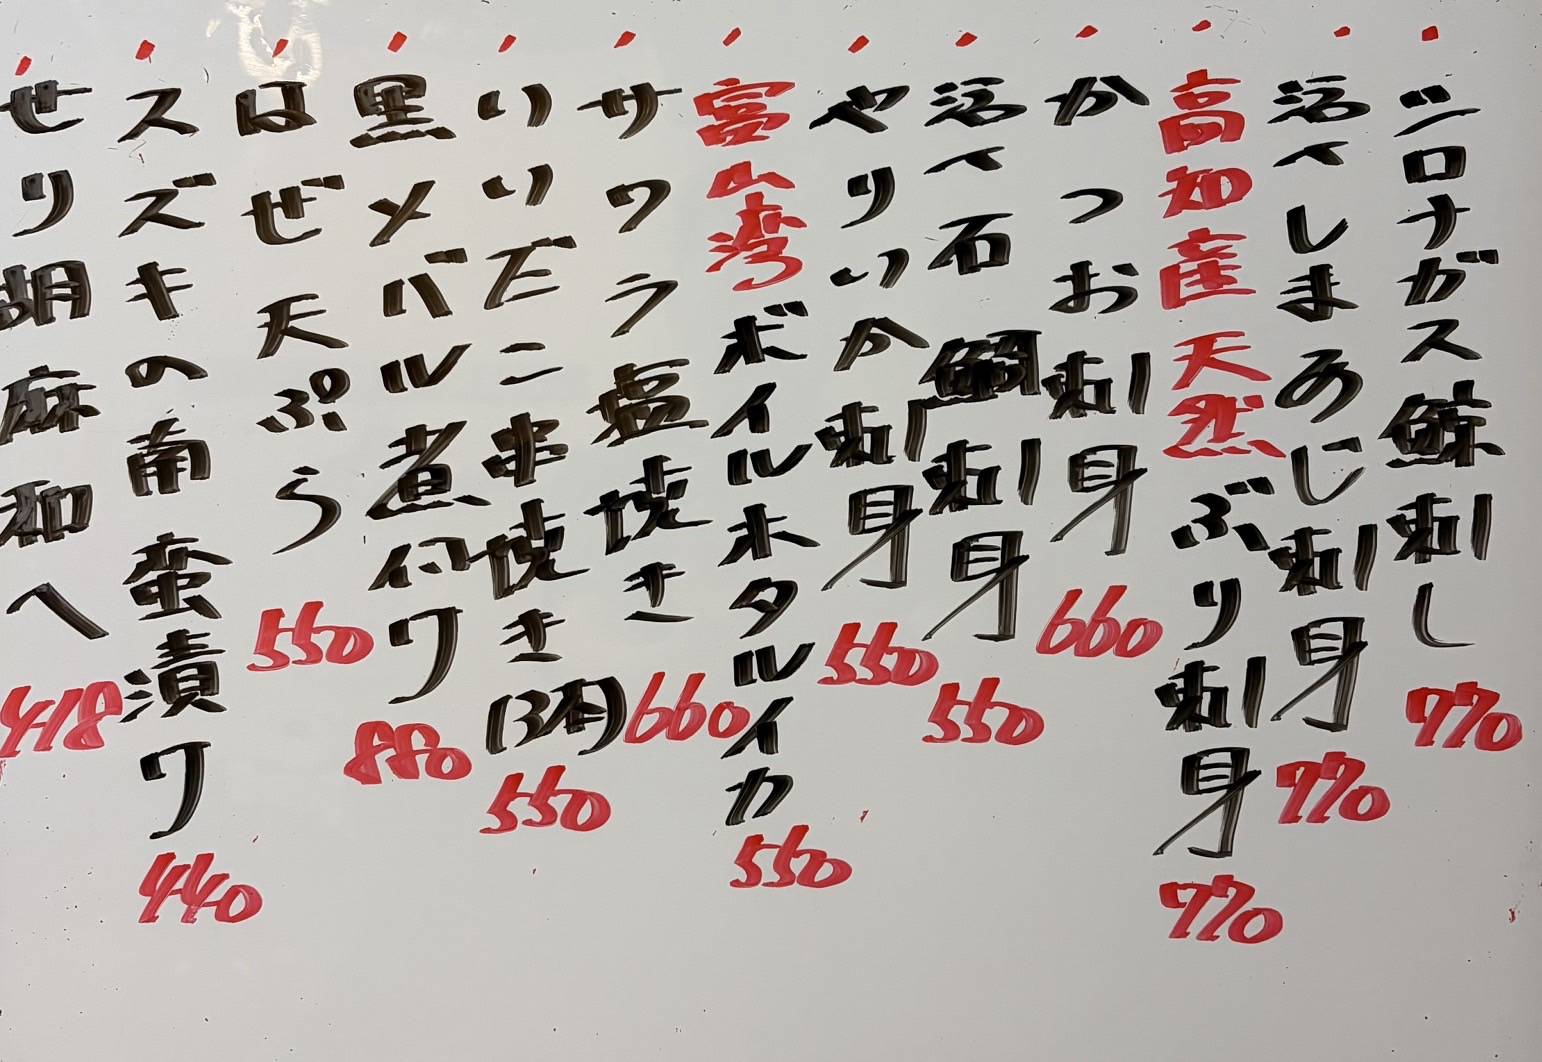 ・シロナガス鯨刺し 770
・活〆しまあじ刺身 770
・高知産天然ぶり刺身 770
・かつお刺身 660
・活〆石鯛刺身 550
・やりいか刺身 550
・富山湾ボイルホタルイカ 550
・サワラ塩焼き 660
・いいだこ串焼き(3本) 550
・黒メバル煮付け 880
・はぜ天ぷら 550
・スズキの南蛮漬け 440
・せり胡麻和へ 418